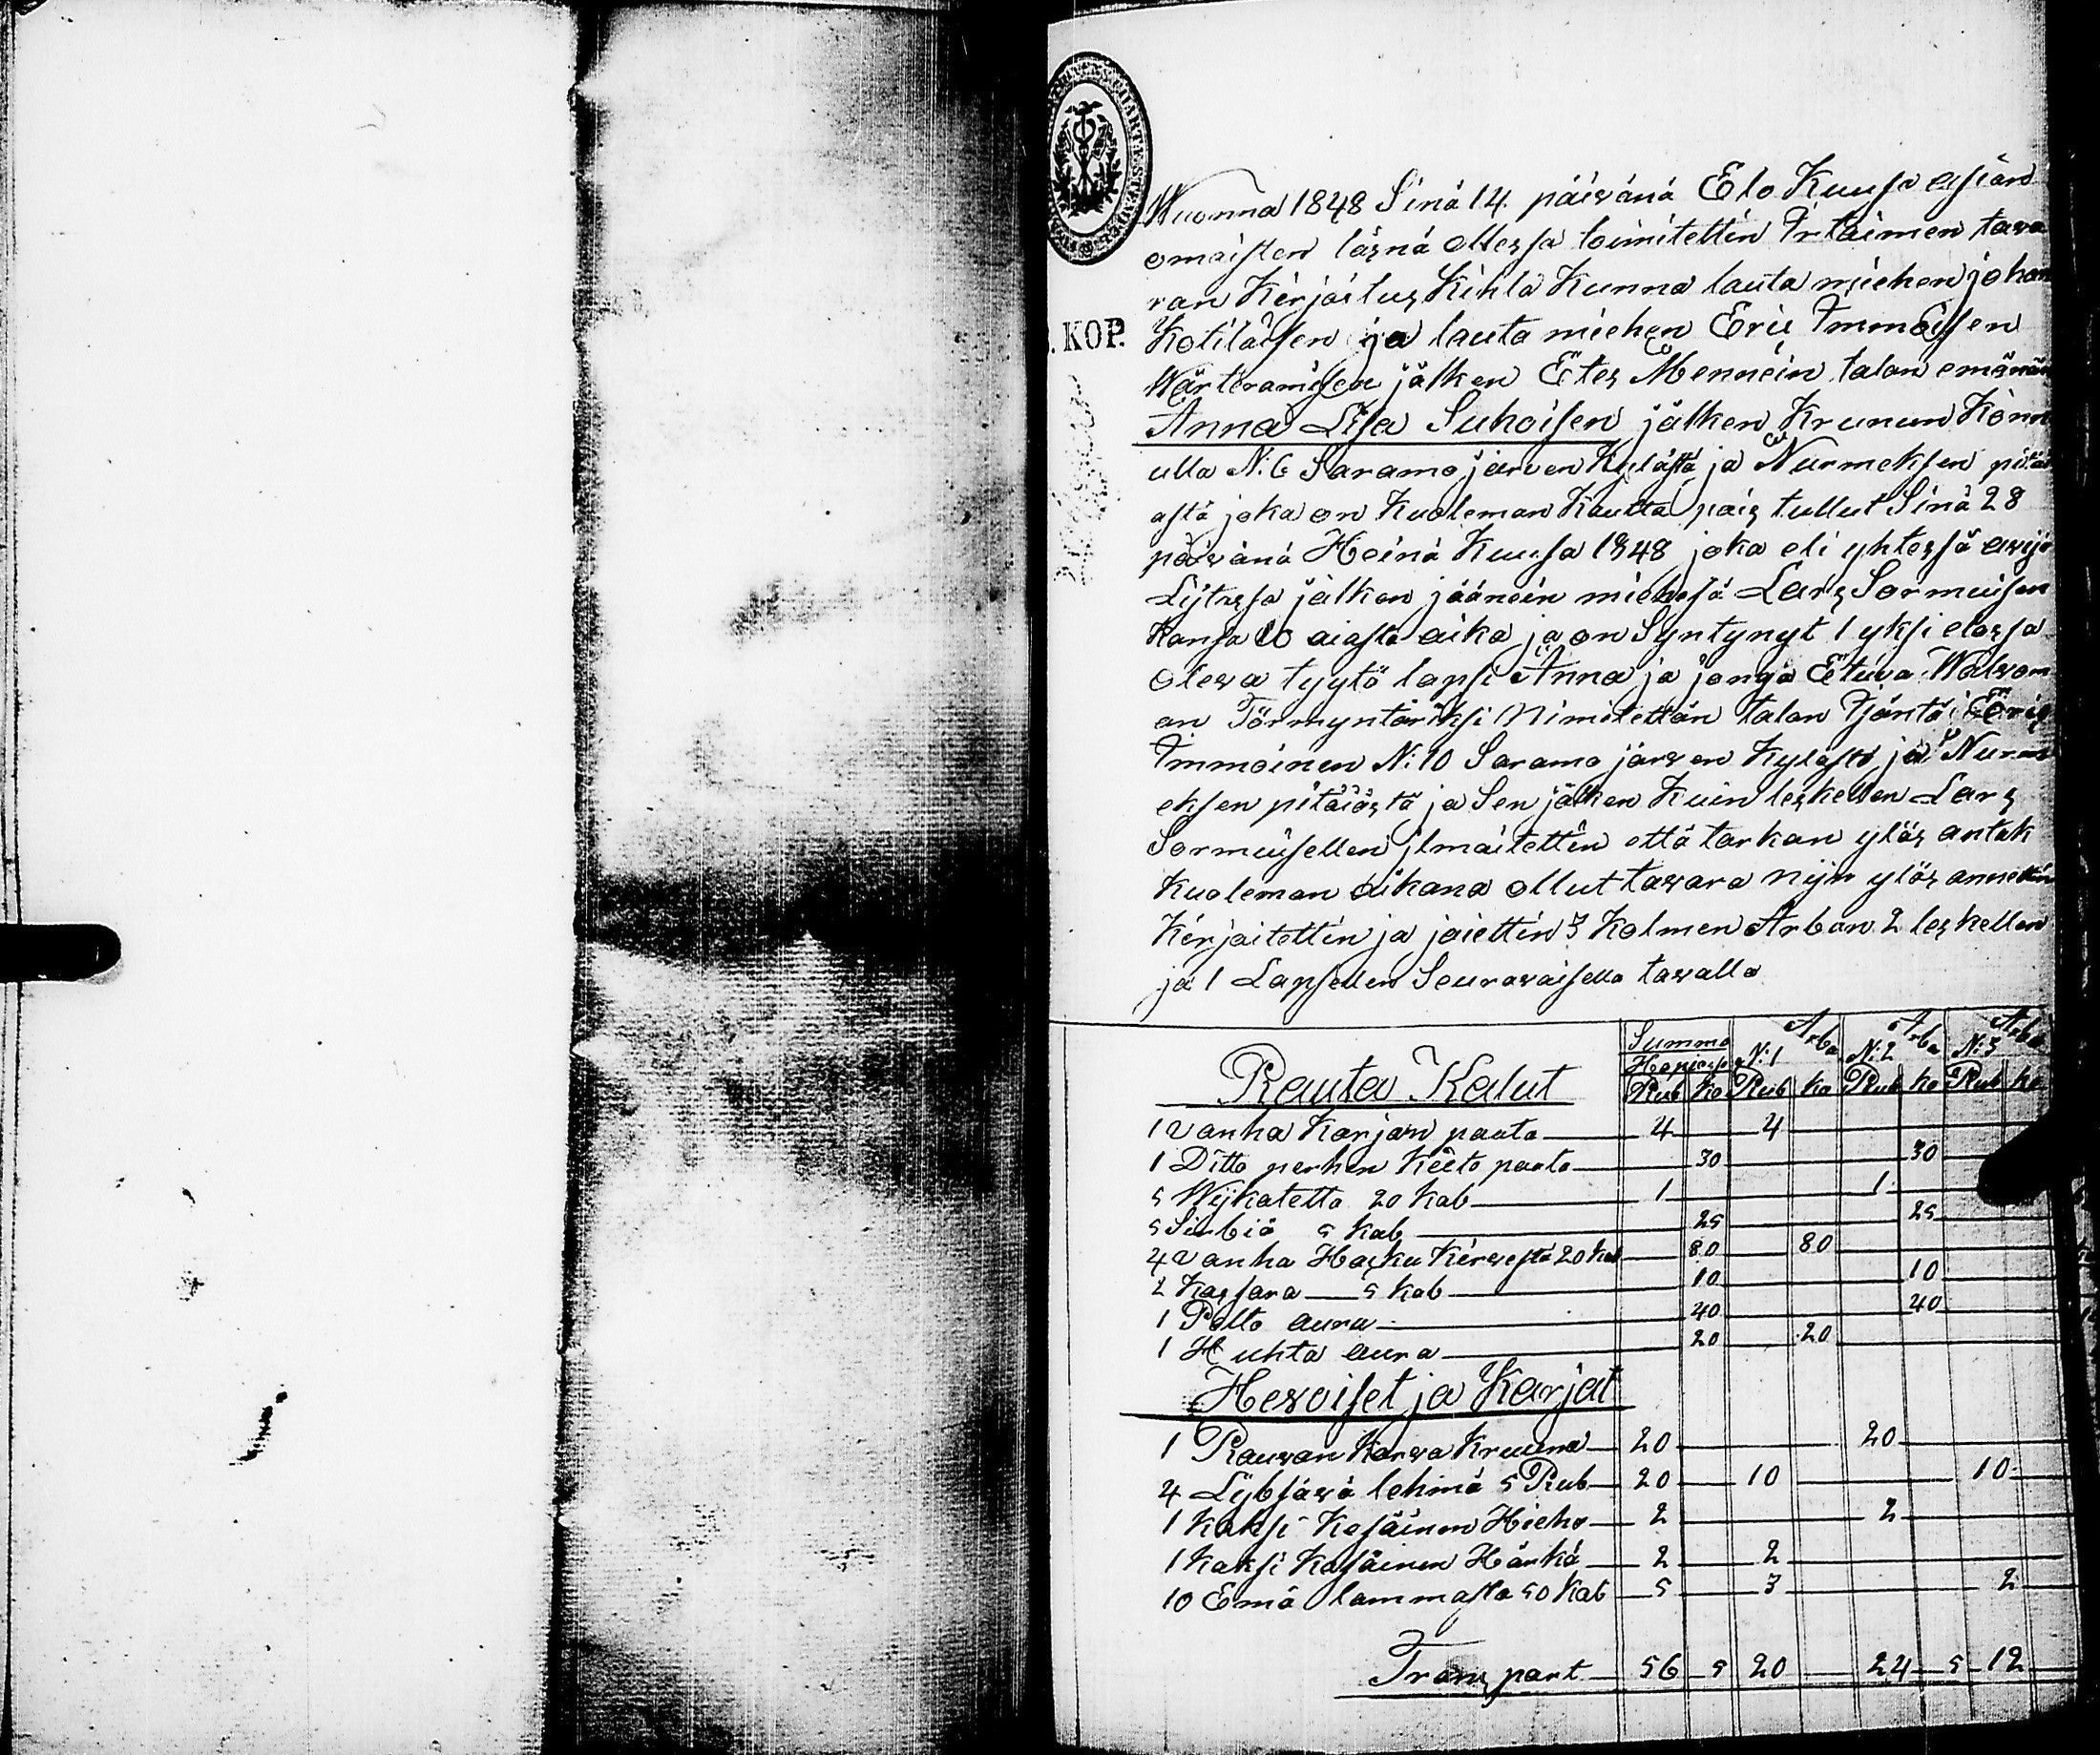 Wuonna 1848 Sinä 14 päivänä Elo Kuusa asian
omaisten läsnä ollessa toimitettin Irtaimen tava
ran Kirjoitus Kihla Kunna lauta miehen johan
KOP.
Kotilaisen ja lauta miehen Eric Immoisen
Wärteramisen jälken Etes Mennein talon emänän
Anna Lisa Suhoisen jälken Krunun Könn
ulla N:6 Saramo järven Kylästä ja Nurmeksen pitäi
ästä joka on Kuoleman Kautta pois tullut Sinä 28
päivänä Heinä Kuusa 1848 joka eli yhtessä avijo
Lijtossa jälken jäänein miehesä Lars Sormuisen
Kansa 10 aiasta aika ja on Syntynyt 1 yksi elossa
oleva tyytö lapsi Anna ja jonga Etuva Walvon
an Törmyntäriksi Nimitettän talon Isäntä Eric
Immoinen N:10 Saramo järven Kylästä ja Nurm
eksen pitäiästä ja Sen jälken Kuin leskellen Lars
Sormuisellen ilmaitettin että tarkan ylös antak
Kuoleman aikana ollut tavara nijn ylös annettin
Kirjaitettin ja jaiettin 3 Kolmen Arban 2 leskellen
ja 1 Lapsellen Seuravaisella tavalla
Summa Arba Arba Arba
Hopiassa N:1 N:2 N:3
Rauta Kalut Rub Ko Rub ko Rub ko Rub ko
1 vanha Karjan paata 4 4
1 Ditto perhen Keito paata 30 30
5 Wijkatetta 20 kab 1 1
5 Sirbiä 5 kab 25 25
4 vanha Hasku Kirvestä 20 kab 80 80
2 Kassara 5 kab 10 10
1 Pelto aura 40 40
1 Huhta aura 20 20
Hevoiset ja Karjat
1 Rauvan Karva Kruuna 20 20
4 Lybsävä lehmä 5 Rub 20 10 10
1 kaksi Kesäinen Hieho 2 2
1 kaksi Kesäinen Härkä 2 2
10 Emä lammasta 50 kab 5 3 2
Transport 56 5 20 24 5 12